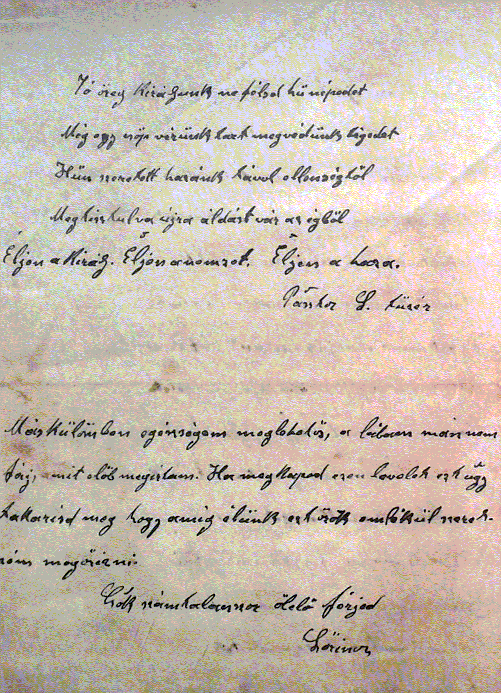 Jó öreg Királyunk ne féltsd hű népedet
Míg egy csöp vérünk tart megvédünk tégedet
Hűn szeretett hazánk távol ellenségtől
Megtisztulva újra áldást vár az égből
Éljen a Király. Éljen a nemzet. Éljen a haza.
Pásztor L. tüzér
Máskülömben egésségem meglehetős, a lábam már nem
fáj, amit előb megirtam. Ha megkapod ezen levelek ezt úgy
takarisd meg hogy amig élünk ezt örök emlékül szeret-
ném megőrizni.
Csók számtalanszor ölelő férjed
Lőrincz